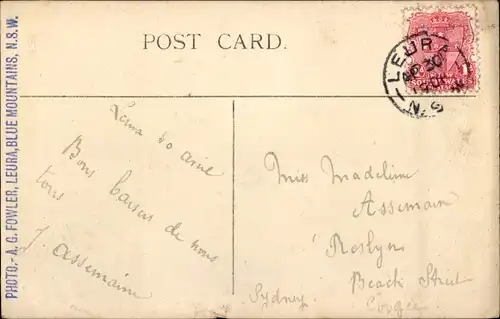 PHOTO.- A. G. FOWLER, LEURA, BLUE MOUNTAINS, N.S.W.
POST CARD.
LEURA
AP 30
N.S.W
Leura 30 avril
Bons baisers de nous
tous
J. Assemaine
Miss Madeleine
Assemain
"Roslyn"
Beach Street
Coogee
Sydney.